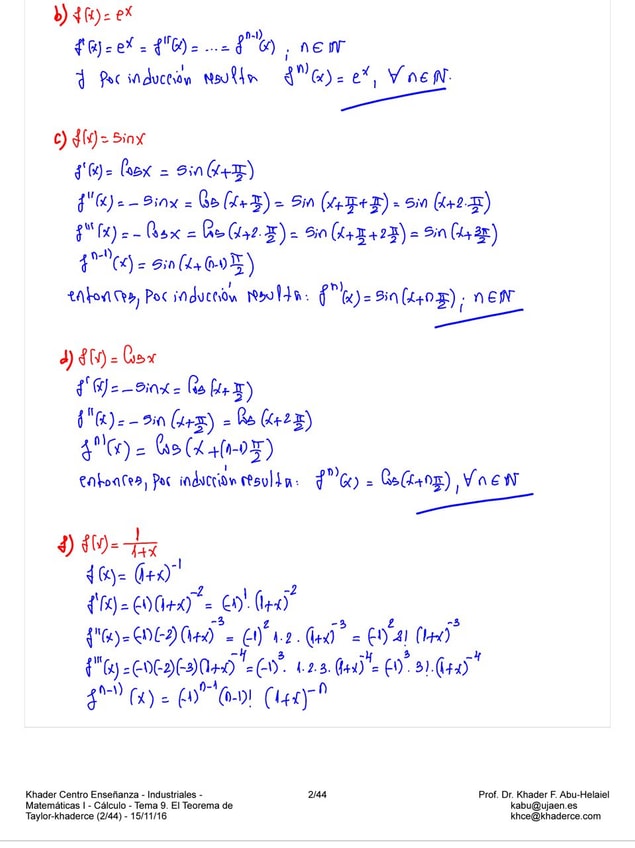 b) f(x) = e^x
f'(x) = e^x = f''(x) = ... = f^{n-1)}(x) ; n ∈ ℕ
y por inducción resulta f^{n)}(x) = e^x, ∀ n ∈ ℕ.
c) f(x) = sin x
f'(x) = Cos x = sin(x + π/2)
f''(x) = - sin x = Cos(x + π/2) = sin(x + π/2 + π/2) = sin(x + 2·π/2)
f'''(x) = - Cos x = Cos(x + 2·π/2) = sin(x + π/2 + 2π/2) = sin(x + 3π/2)
f^{n-1)}(x) = sin(x + (n-1)π/2)
entonces, por inducción resulta: f^{n)}(x) = sin(x + nπ/2) ; n ∈ ℕ
d) f(x) = Cos x
f'(x) = - sin x = Cos(x + π/2)
f''(x) = - sin(x + π/2) = Cos(x + 2π/2)
f^{n)}(x) = Cos(x + (n-1)π/2)
entonces, por inducción resulta: f^{n)}(x) = Cos(x + nπ/2), ∀ n ∈ ℕ
f) f(x) = 1/(1+x)
f(x) = (1+x)^{-1}
f'(x) = (-1)(1+x)^{-2} = (-1)^1·(1+x)^{-2}
f''(x) = (-1)(-2)(1+x)^{-3} = (-1)^2 1·2·(1+x)^{-3} = (-1)^2 2! (1+x)^{-3}
f'''(x) = (-1)(-2)(-3)(1+x)^{-4} = (-1)^3· 1·2·3·(1+x)^{-4} = (-1)^3·3!·(1+x)^{-4}
f^{n-1)}(x) = (-1)^{n-1}(n-1)! (1+x)^{-n}
Khader Centro Enseñanza - Industriales -
Matemáticas I - Cálculo - Tema 9. El Teorema de
Taylor-khaderce (2/44) - 15/11/16
2/44
Prof. Dr. Khader F. Abu-Helaiel
kabu@ujaen.es
khce@khaderce.com